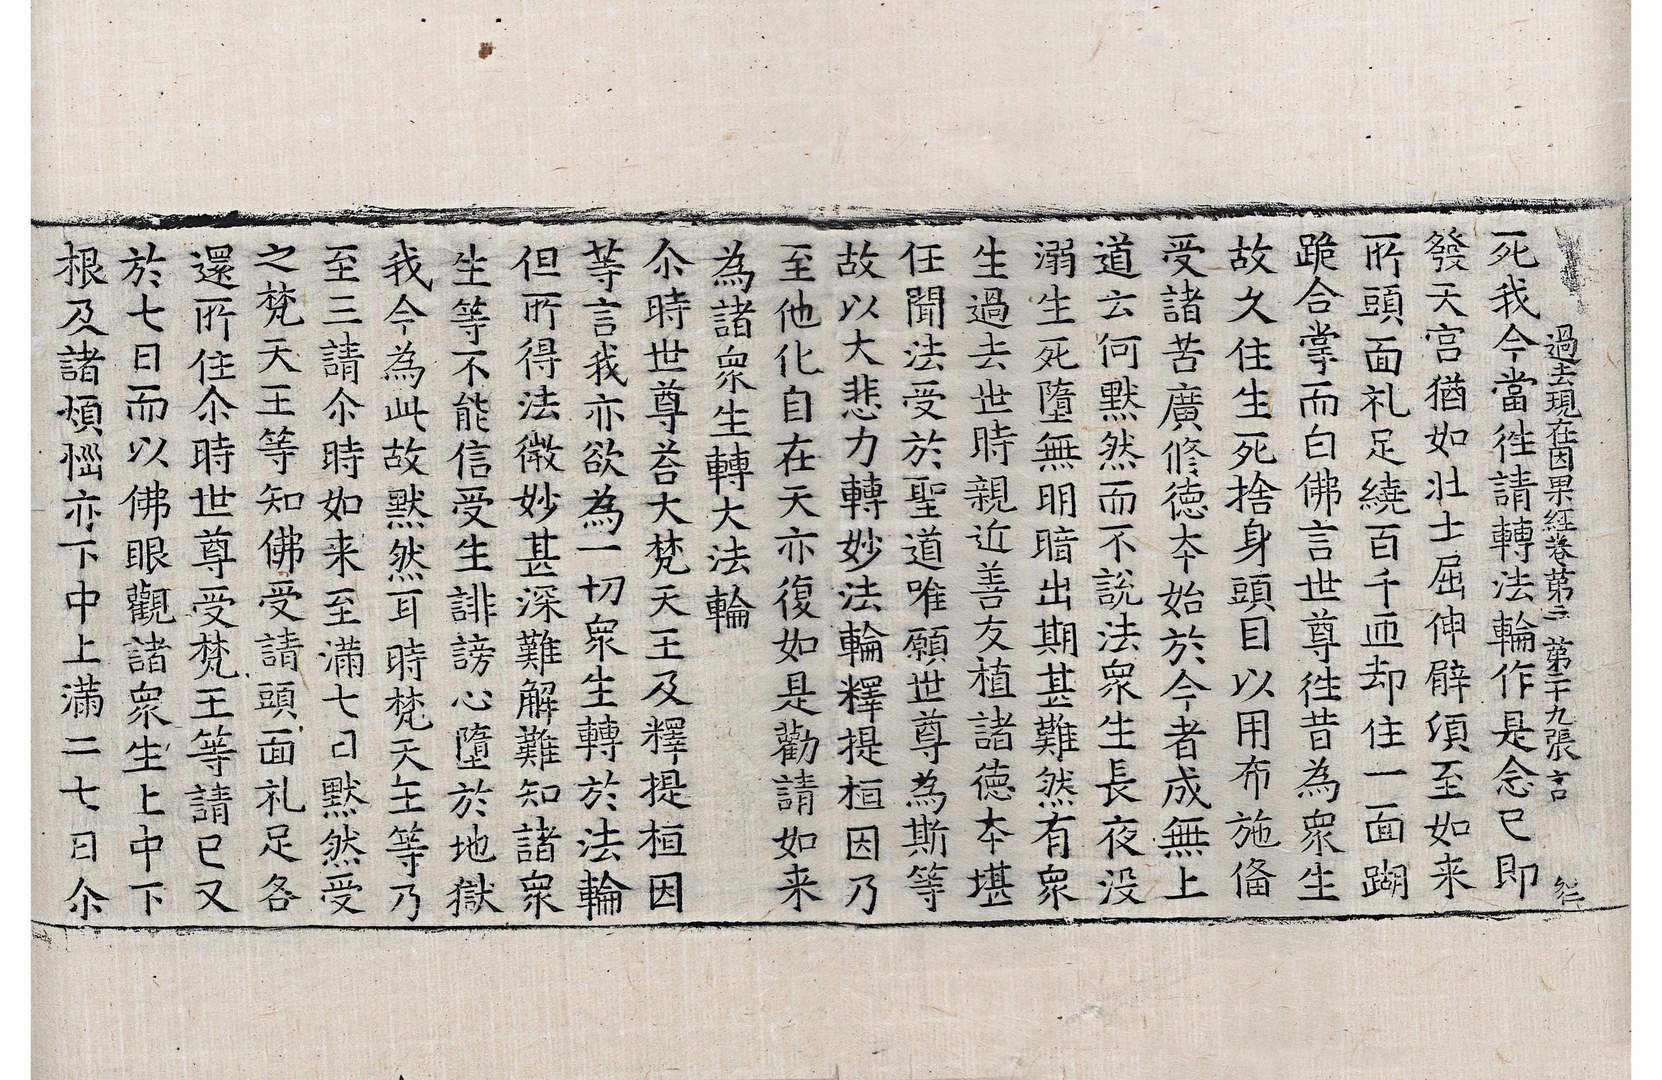 過去現在因果經卷第三 第二十九張 言
死我今當往請轉法輪作是念已即
發天宮猶如壯士屈伸臂頃至如来
所頭面礼足繞百千匝却住一面𨂜
跪合掌而白佛言世尊往昔為衆生
故久住生死捨身頭目以用布施俻
受諸苦廣修德本始於今者成無上
道云何默然而不說法衆生長夜没
溺生死墮無明暗出期甚難然有衆
生過去世時親近善友植諸德本堪
任聞法受於聖道唯願世尊為斯等
故以大悲力轉妙法輪釋提桓因乃
至他化自在天亦復如是勸請如来
為諸衆生轉大法輪
尒時世尊荅大梵天王及釋提桓因
等言我亦欲為一切衆生轉於法輪
但所得法微妙甚深難解難知諸衆
生等不能信受生誹謗心墮於地獄
我今為此故默然耳時梵天王等乃
至三請尒時如来至滿七日默然受
之梵天王等知佛受請頭面礼足各
還所住尒時世尊受梵王等請已又
於七日而以佛眼觀諸衆生上中下
根及諸煩惱亦下中上滿二七日尒